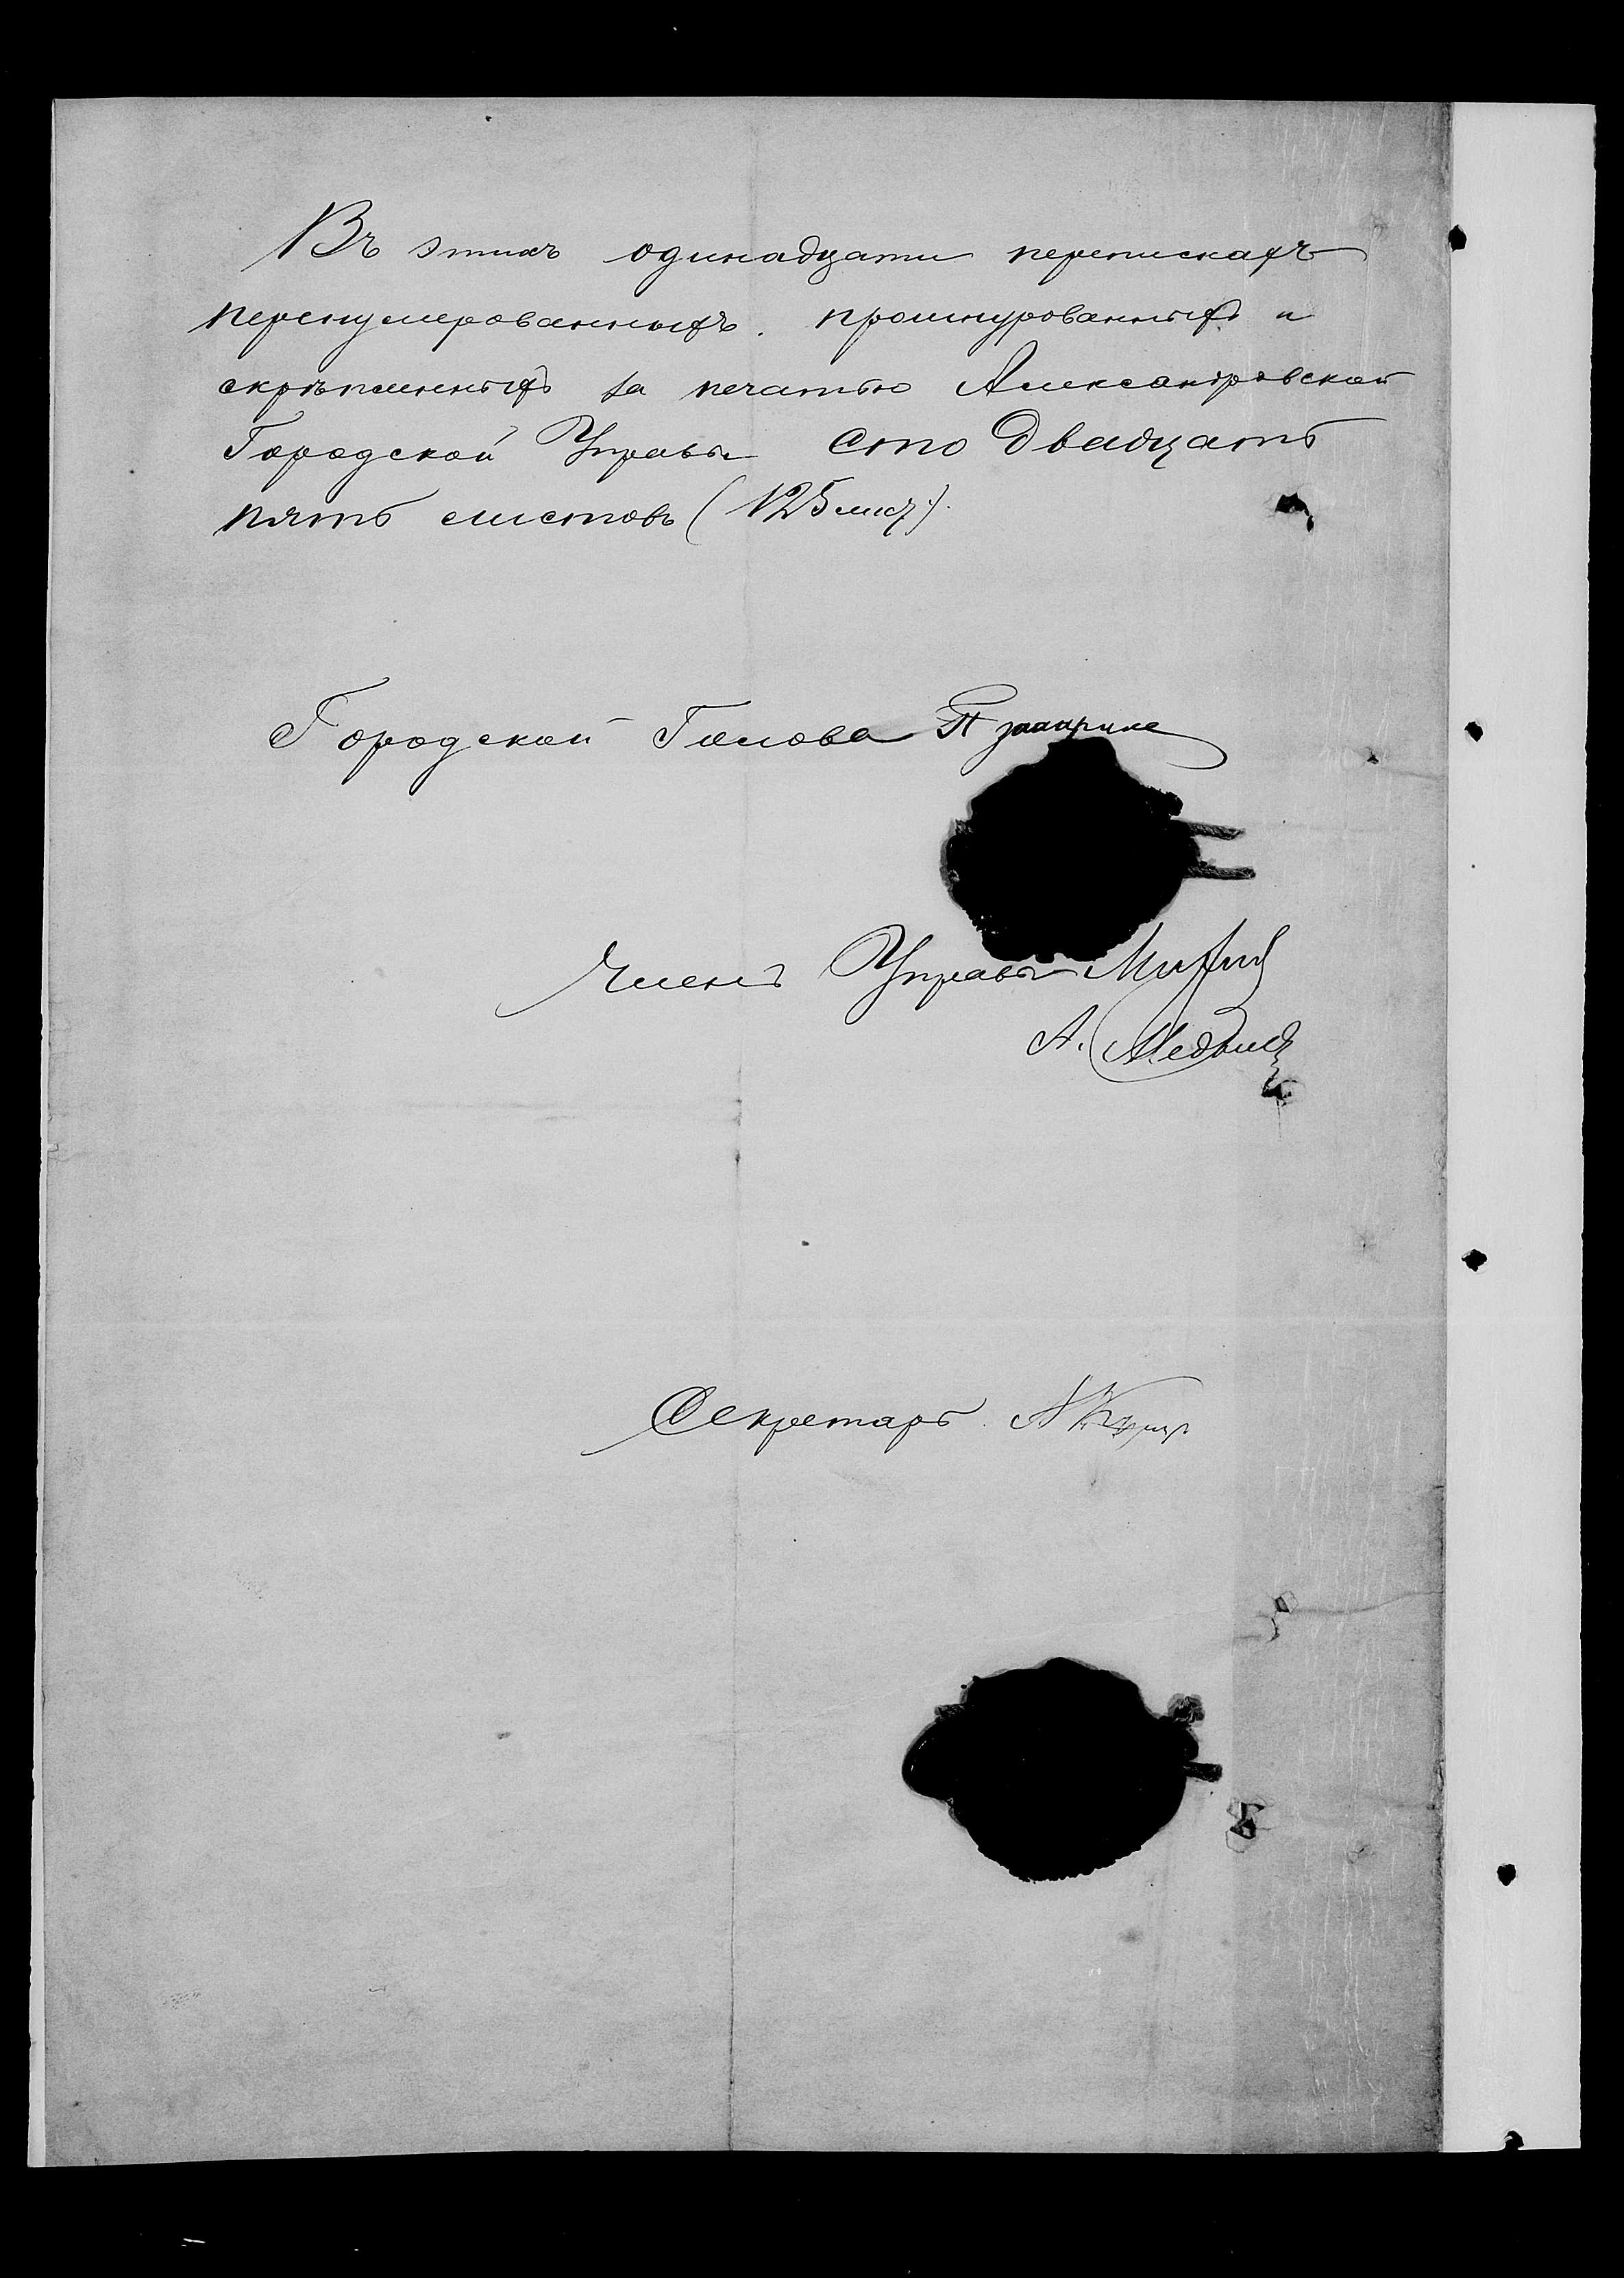 Въ этихъ одинадцати перепискахъ
перенумерованныхъ. прошнурованныхъ и
скрѣпленныхъ за печатью Александровской
Городской Управы Сто двадцать
пять листовъ (125 лист.).
Городской Голова
Членъ Управы
А.
Секретарь